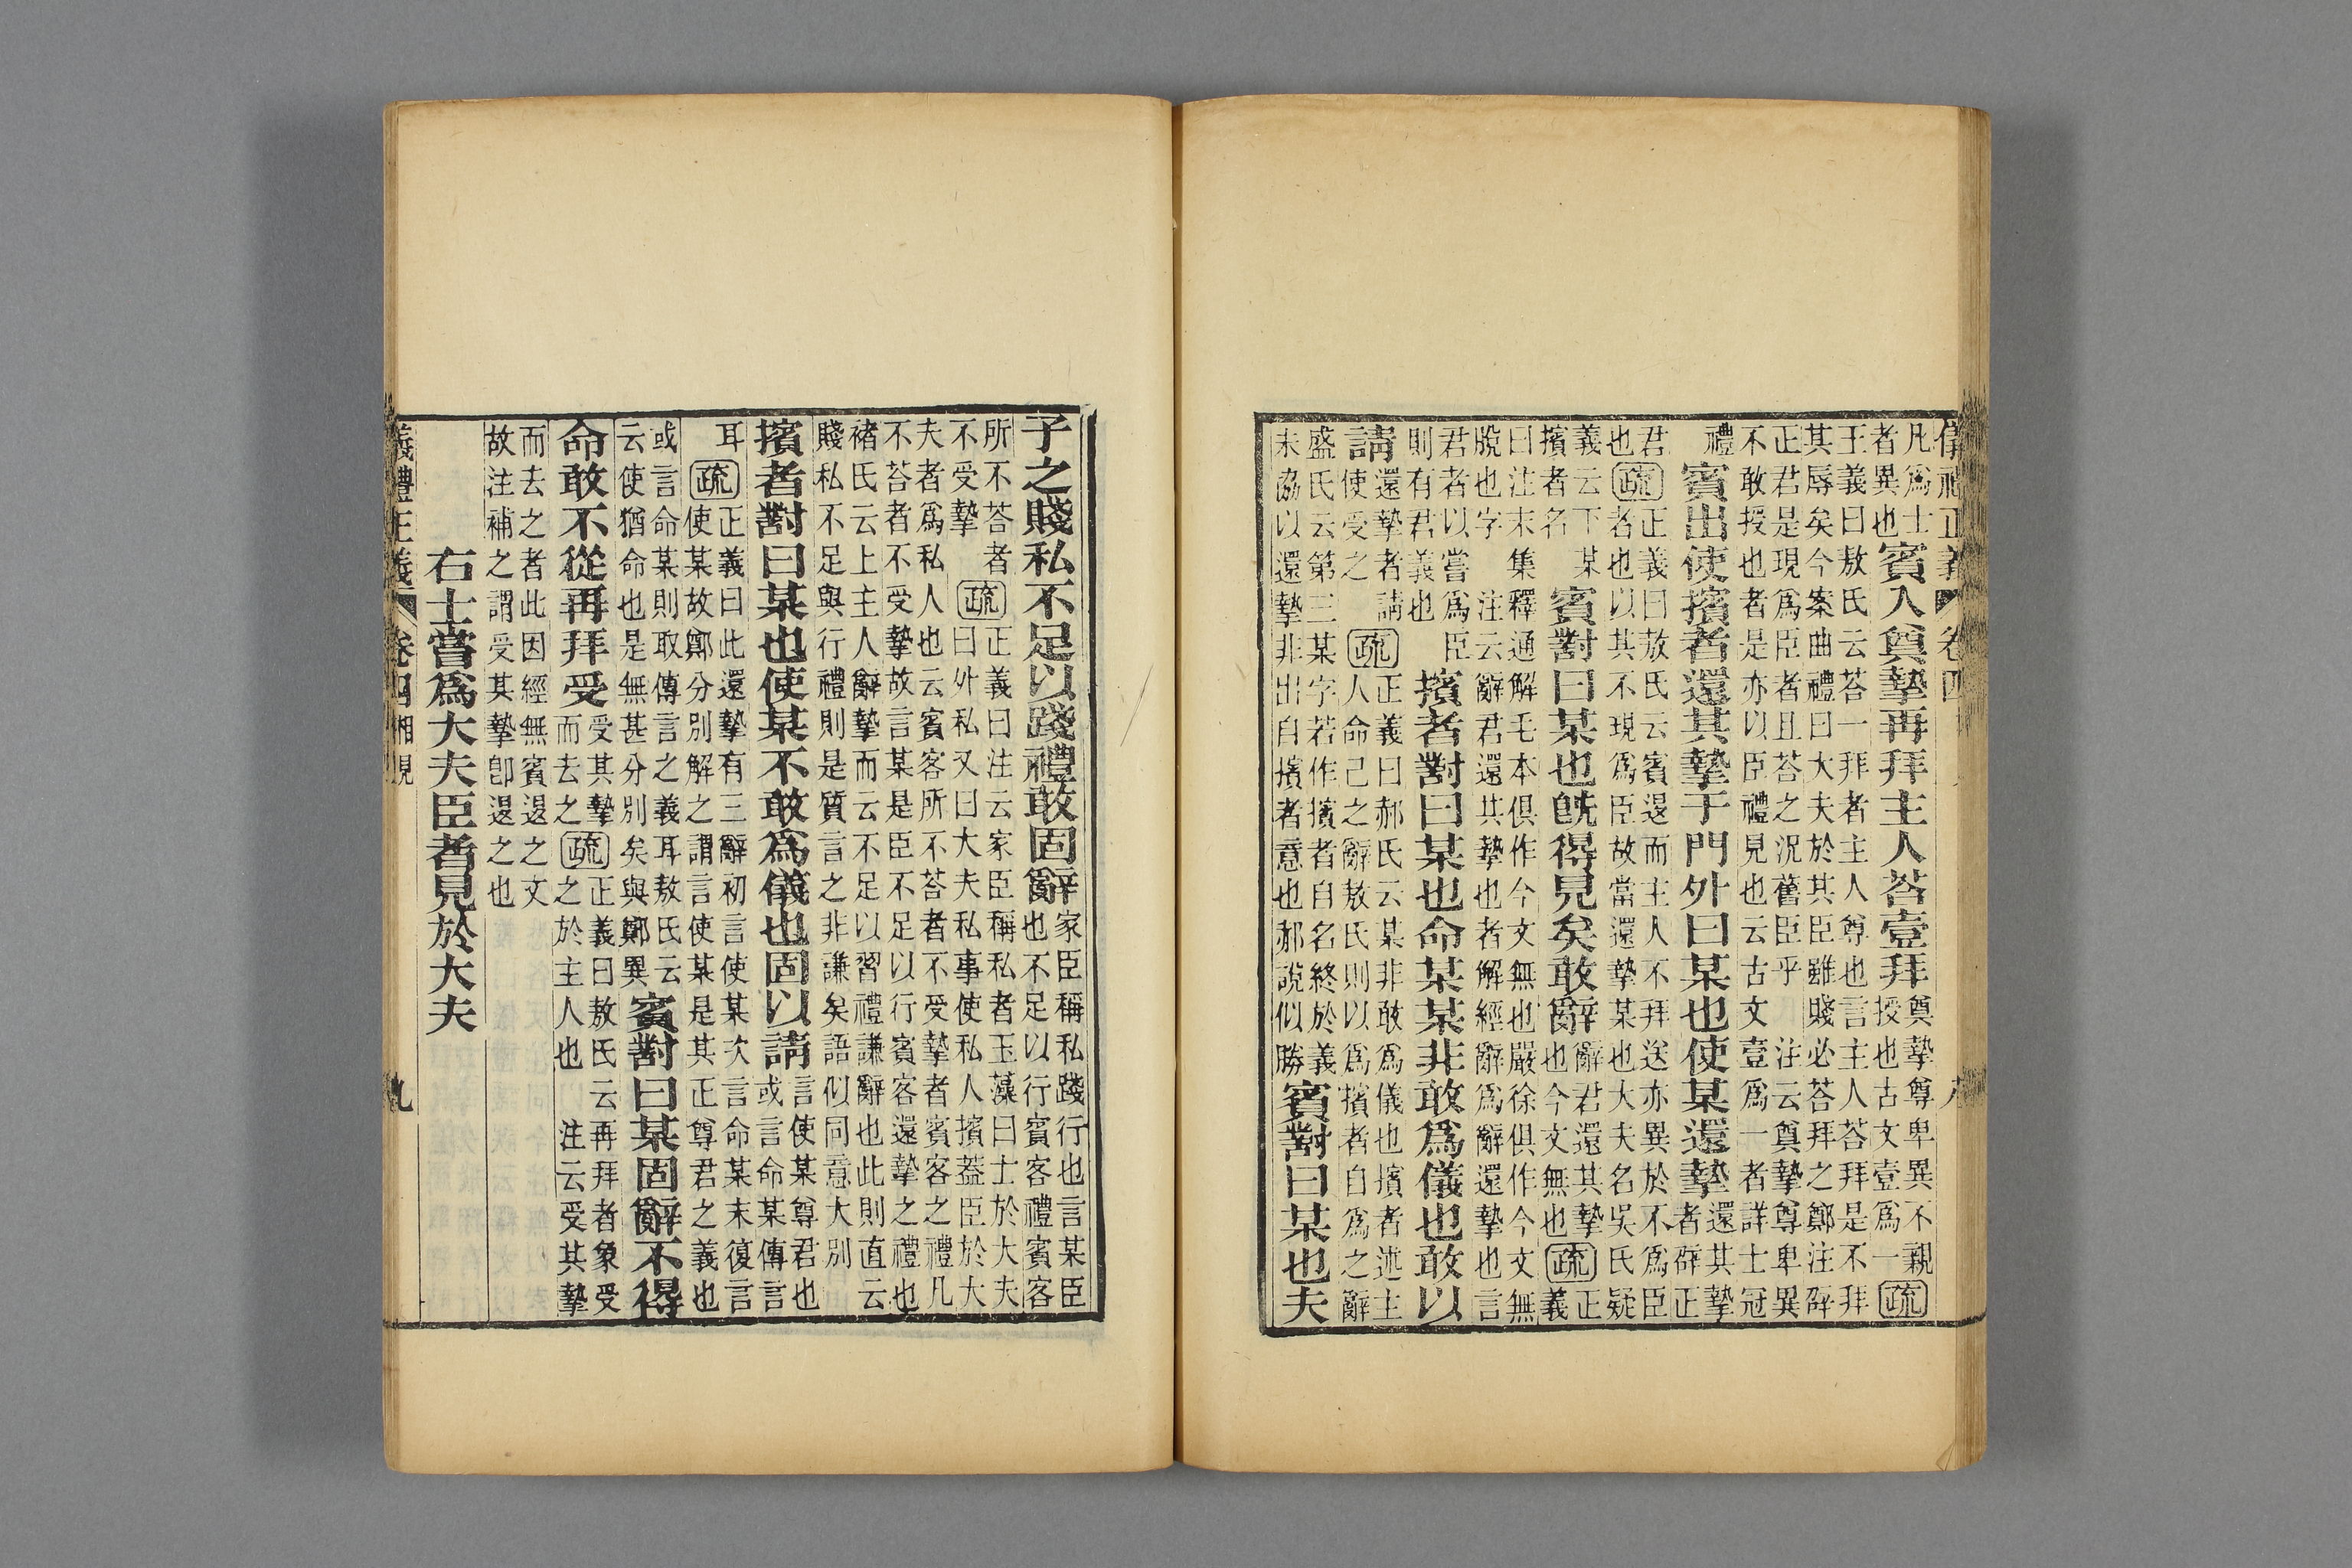 儀禮正義 卷四
凡爲士
者異也
賓入奠摯再拜主人荅壹拜
奠摯尊卑異不親
授也古文壹爲一
疏
正義曰敖氏云荅一拜者主人尊也言主人荅拜是不拜
其辱矣今案曲禮曰大夫於其臣雖賤必荅拜之鄭注辟
正君是現爲臣者且荅之況舊臣乎　注云奠摯尊卑異
不敢授也者是亦以臣禮見也云古文壹爲一者詳士冠
禮
賓出使擯者還其摯于門外曰某也使某還摯
還其摯
者辟正
君
也
疏
正義曰敖氏云賓退而主人不拜送亦異於不爲臣
者也以其不現爲臣故當還摯某也大夫名吳氏疑
義云下某
擯者名
賓對曰某也旣得見矣敢辭
辭君還其摯
也今文無也
疏
正
義
曰注末集釋通解毛本俱作今文無也嚴徐俱作今文無
脫也字　注云辭君還其摯也者解經辭爲辭還摯也言
君者以嘗爲臣
則有君義也
擯者對曰某也命某某非敢爲儀也敢以
請
還摯者請
使受之
疏
正義曰郝氏云某非敢爲儀也擯者述主
人命己之辭敖氏則以爲擯者自爲之辭
盛氏云第三某字若作擯者自名終於義
未協以還摯非出自擯者意也郝說似勝
賓對曰某也夫
子之賤私不足以踐禮敢固辭
家臣稱私踐行也言某臣
也不足以行賓客禮賓客
所不荅者
不受摯
疏
正義曰注云家臣稱私者玉藻曰士於大夫
曰外私又曰大夫私事使私人擯蓋臣於大
夫者爲私人也云賓客所不荅者不受摯者賓客之禮凡
不荅者不受摯故言某是臣不足以行賓客還摯之禮也
褚氏云上主人辭摯而云不足以習禮謙辭也此則直云
賤私不足與行禮則是質言之非謙矣語似同意大別
擯者對曰某也使某不敢爲儀也固以請
言使某尊君也
或言命某傳言
耳
疏
正義曰此還摯有三辭初言使某次言命某末復言
使某故鄭分別解之謂言使某是其正尊君之義也
或言命某則取傳言之義耳敖氏云
云使猶命也是無甚分別矣與鄭異
賓對曰某固辭不得
命敢不從再拜受
受其摯
而去之
疏
正義曰敖氏云再拜者象受
之於主人也　注云受其摯
而去之者此因經無賓退之文
故注補之謂受其摯卽退之也
右士嘗爲大夫臣者見於大夫
義禮正義 卷四 相見 九